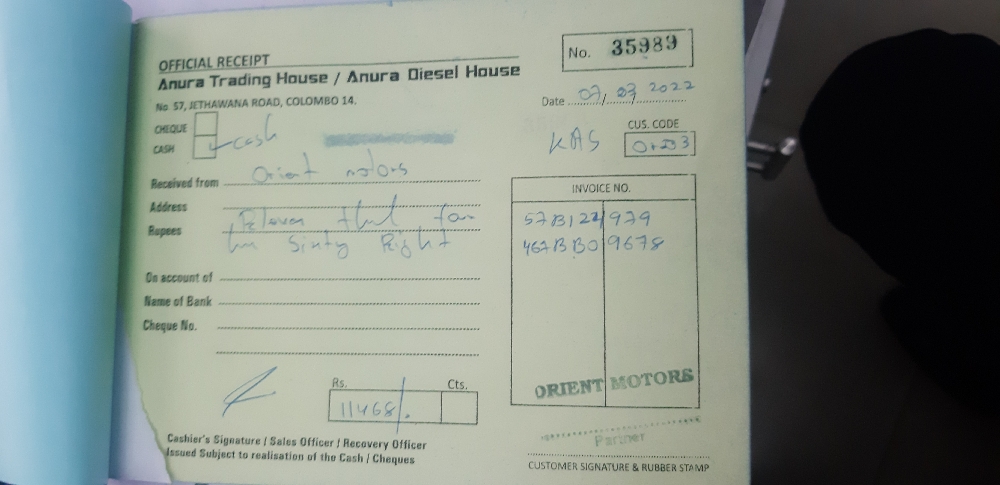 OFFICIAL RECEIPT
No. 35989
Anura Trading House / Anura Diesel House
No 57, JETHAWANA ROAD, COLOMBO 14.
Date 07/03/2022
CHEQUE
CASH cash
KAS
CUS. CODE
Received from Orient motors
INVOICE NO.
Address
Rupees Eleven thd four
hn Sixty Eight
57B122/979
467BBO9678
On account of
Name of Bank
Cheque No.
Rs. Cts.
11468/.
ORIENT MOTORS
Partner
Cashier's Signature / Sales Officer / Recovery Officer
Issued Subject to realisation of the Cash / Cheques
CUSTOMER SIGNATURE & RUBBER STAMP